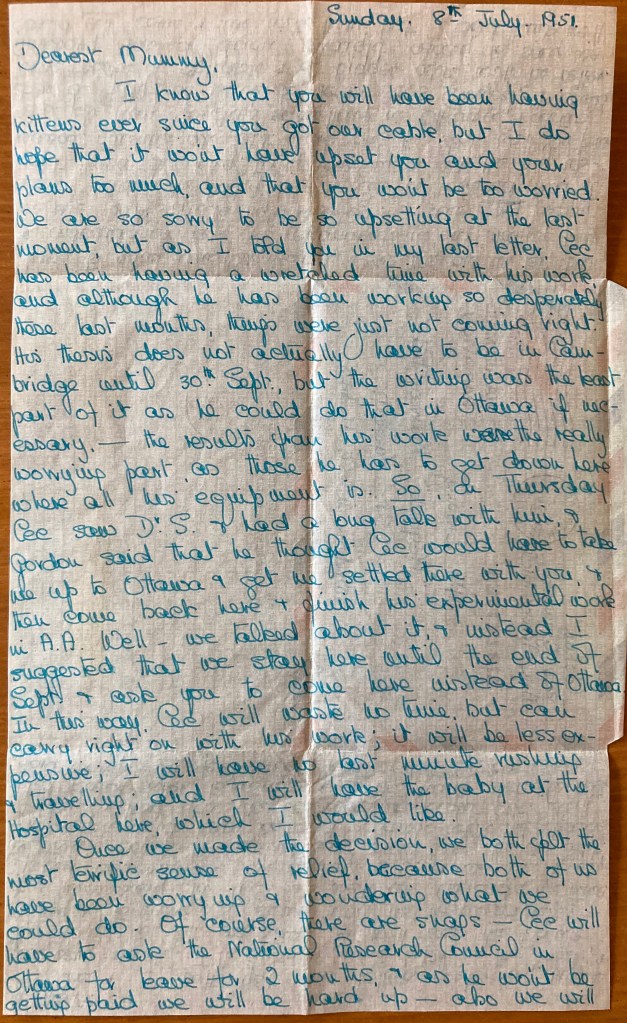 Sunday. 8th July. 1951.
Dearest Mummy,
I know that you will have been having
kittens ever since you got our cable, but I do
hope that it won't have upset you and your
plans too much, and that you won't be too worried.
We are so sorry to be so upsetting at the last
moment, but as I told you in my last letter, Cec
has been having a wretched time with his work,
and although he has been working so desperately
these last months, things were just not coming right.
His thesis does not actually have to be in Cam-
bridge until 30th Sept., but the writing was the least
part of it as he could do that in Ottawa if nec-
essary. — the results from his work were the really
worrying part, as those he has to get down here
where all his equipment is. So, on Thursday
Cec saw Dr. S. & had a long talk with him, &
Gordon said that he thought Cec would have to take
me up to Ottawa & get me settled there with you, &
then come back here & finish his experimental work
in A.A. Well – we talked about it, & instead I
suggested that we stay here until the end of
Sept. & ask you to come here instead of Ottawa
In this way, Cec will waste no time, but can
carry right on with his work; it will be less ex-
pensive; I will have no last minute rushing
& travelling; and I will have the baby at the
Hospital here, which I would like.
Once we made the decision, we both felt the
most terrific sense of relief, because both of us
have been worrying & wondering what we
could do. Of course, there are snags — Cec will
have to ask the National Research Council in
Ottawa for leave for 2 months, & as he won't be
getting paid we will be hard up — also we will